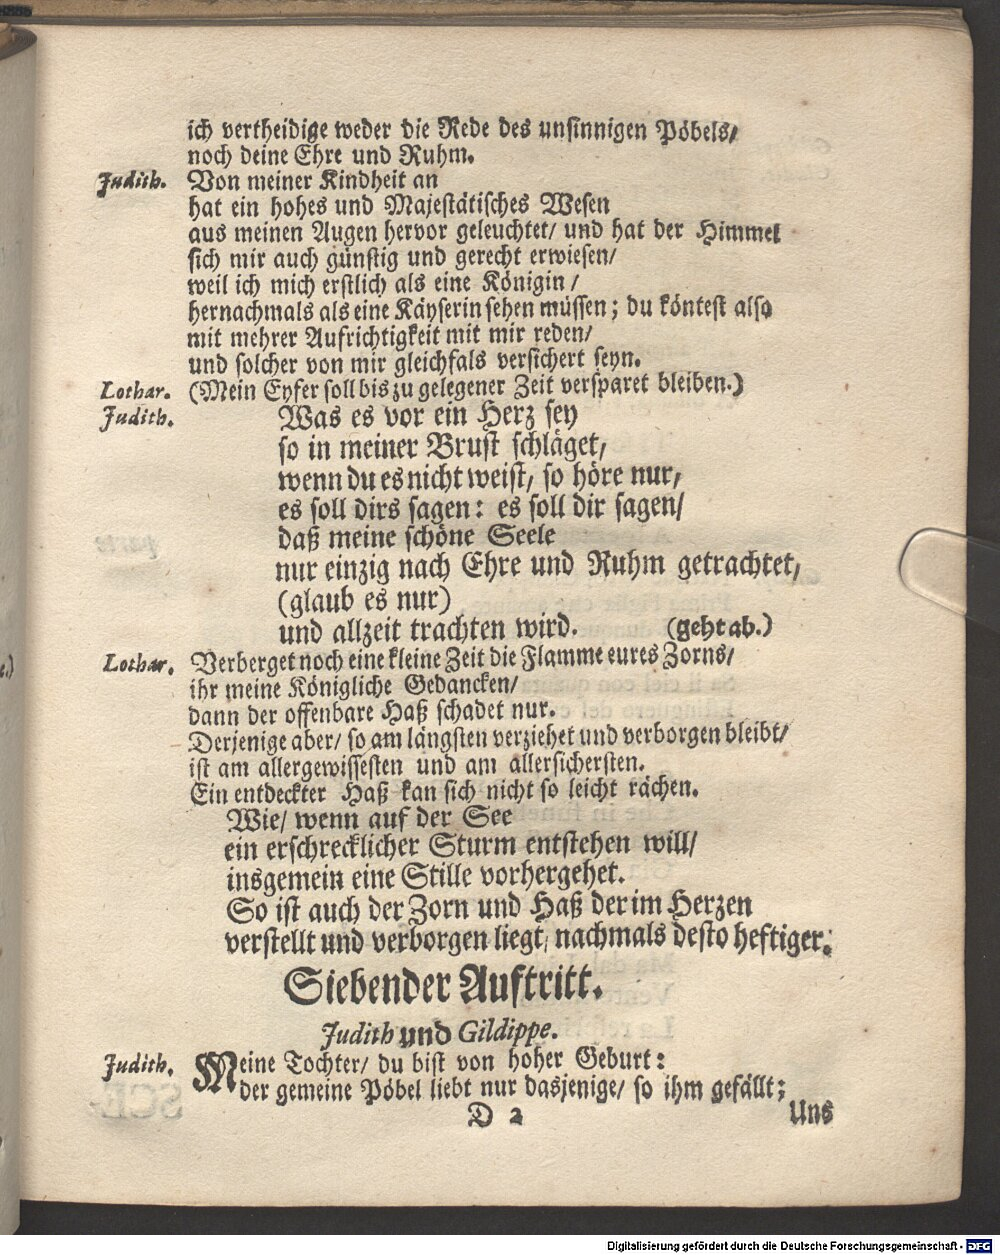 ich vertheidige weder die Rede des unsinnigen Pöbels/
noch deine Ehre und Ruhm.
Judith. Von meiner Kindheit an
hat ein hohes und Majestätisches Wesen
aus meinen Augen hervor geleuchtet/ und hat der Himmel
sich mir auch günstig und gerecht erwiesen/
weil ich mich erstlich als eine Königin/
hernachmals als eine Käyserin sehen müssen; du köntest also
mit mehrer Aufrichtigkeit mit mir reden/
und solcher von mir gleichfals versichert seyn.
Lothar. (Mein Eyfer soll bis zu gelegener Zeit versparet bleiben.)
Judith. Was es vor ein Herz sey
so in meiner Brust schläget,
wenn du es nicht weist, so höre nur,
es soll dirs sagen: es soll dir sagen/
daß meine schöne Seele
nur einzig nach Ehre und Ruhm getrachtet,
(glaub es nur)
und allzeit trachten wird. (geht ab.)
Lothar. Verberget noch eine kleine Zeit die Flamme eures Zorns/
ihr meine Königliche Gedancken/
dann der offenbare Haß schadet nur.
Derjenige aber/ so am längsten verziehet und verborgen bleibt/
ist am allergewissesten und am allersichersten.
Ein entdeckter Haß kan sich nicht so leicht rächen.
Wie/ wenn auf der See
ein erschrecklicher Sturm entstehen will/
insgemein eine Stille vorhergehet.
So ist auch der Zorn und Haß der im Herzen
verstellt und verborgen liegt, nachmals desto heftiger.
Siebender Auftritt.
Judith und Gildippe.
Judith. Meine Tochter/ du bist von hoher Geburt:
der gemeine Pöbel liebt nur dasjenige/ so ihm gefällt;
D 2 Uns
Digitalisierung gefördert durch die Deutsche Forschungsgemeinschaft - DFG